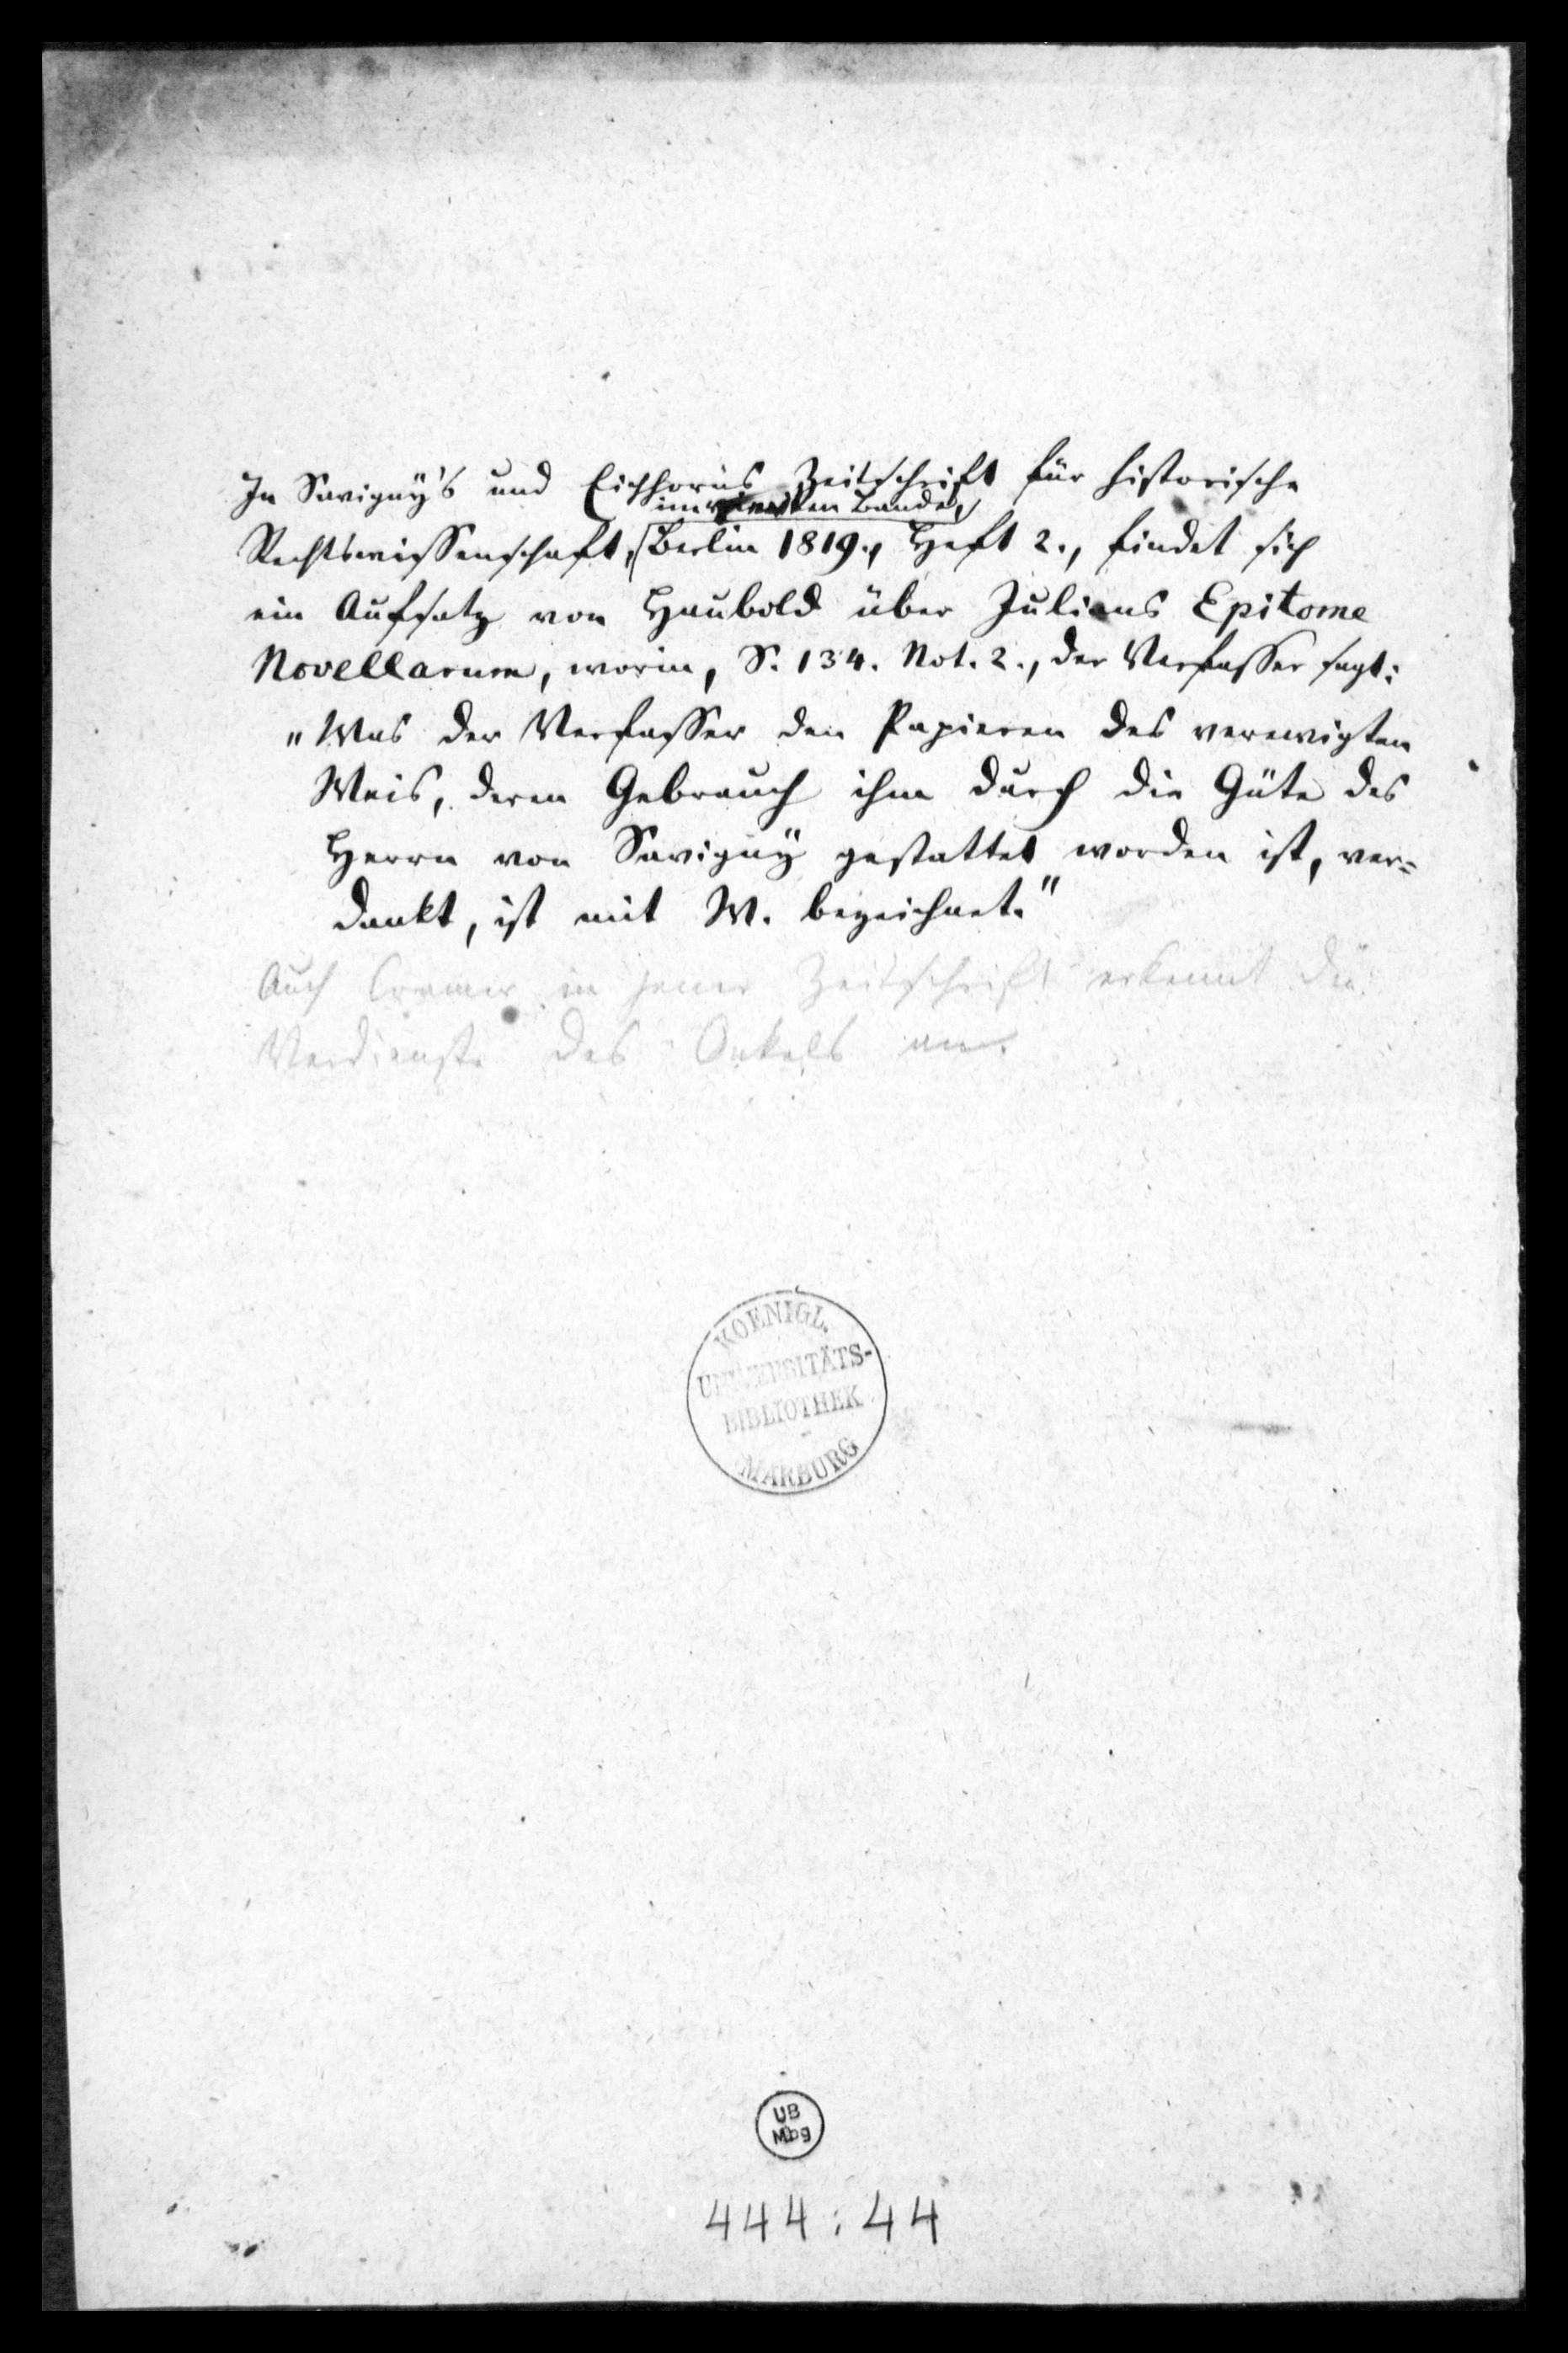 In Savigny's und Eichhorns Zeitschrift für historische
im vierten Bande,
Rechtswissenschaft, Berlin 1819., Heft 2., findet sich
ein Aufsatz von Haubold über Julians Epitome
Novellarum, worin, S. 134. Not. 2., der Verfasser sagt:
"Was der Verfasser den Papieren des verewigten
Weis, deren Gebrauch ihm durch die Güte des
Herrn von Savigny gestattet worden ist, ver=
dankt, ist mit W. bezeichnet."
Auch Cramer in jener Zeitschrift erkennt die
Verdienste des Onkels an.
KOENIGL.
UNIVERSITÄTS-
BIBLIOTHEK
MARBURG
UB
Mbg
444:44